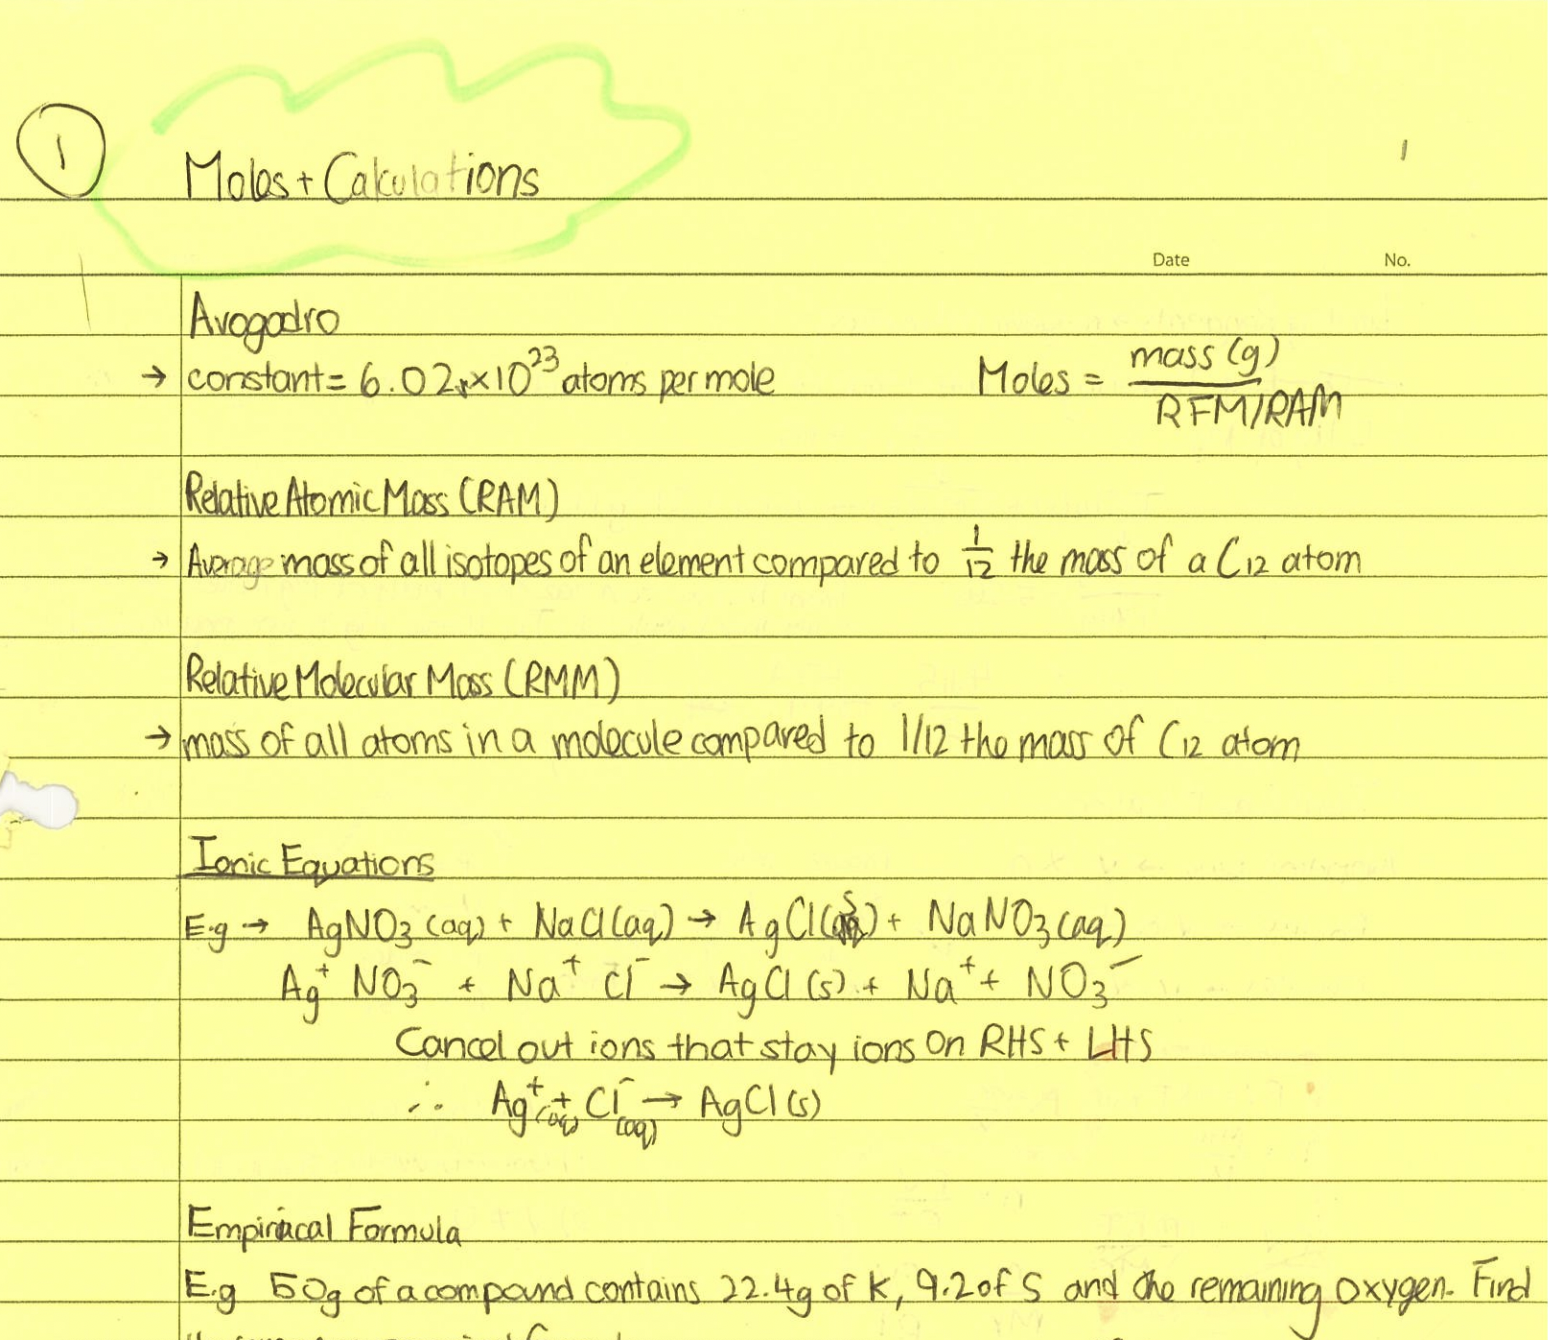 1
Moles + Calculations
1
Date No.
Avogadro
→ constant = 6.02 x10²³ atoms per mole
Moles = mass (g) / RFM/RAM
Relative Atomic Mass (RAM)
→ Average mass of all isotopes of an element compared to 1/12 the mass of a C12 atom
Relative Molecular Mass (RMM)
→ mass of all atoms in a molecule compared to 1/12 the mass of C12 atom
Ionic Equations
E.g → AgNO₃ (aq) + NaCl (aq) → AgCl (s) + NaNO₃ (aq)
Ag⁺ NO₃⁻ + Na⁺ Cl⁻ → AgCl (s) + Na⁺ + NO₃⁻
Cancel out ions that stay ions on RHS + LHS
∴ Ag⁺(aq) + Cl⁻(aq) → AgCl (s)
Empirical Formula
E.g 50g of a compound contains 22.4g of K, 9.2 of S and the remaining oxygen. Find